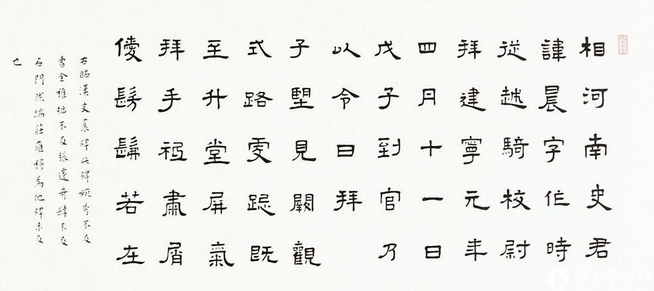 相河南史君
諱晨字伯時
從越騎校尉
拜建寧元年
四月十一日
戊子到官乃
以令日拜
子朢見闕觀
式路虔跽既
至升堂屏氣
拜手祗肅屑
僾髣髴若在
右臨漢史晨碑此碑婉秀不及
曹全雄拙不及張遷奇肆不及
石門然端莊雍穆為他碑未及
也